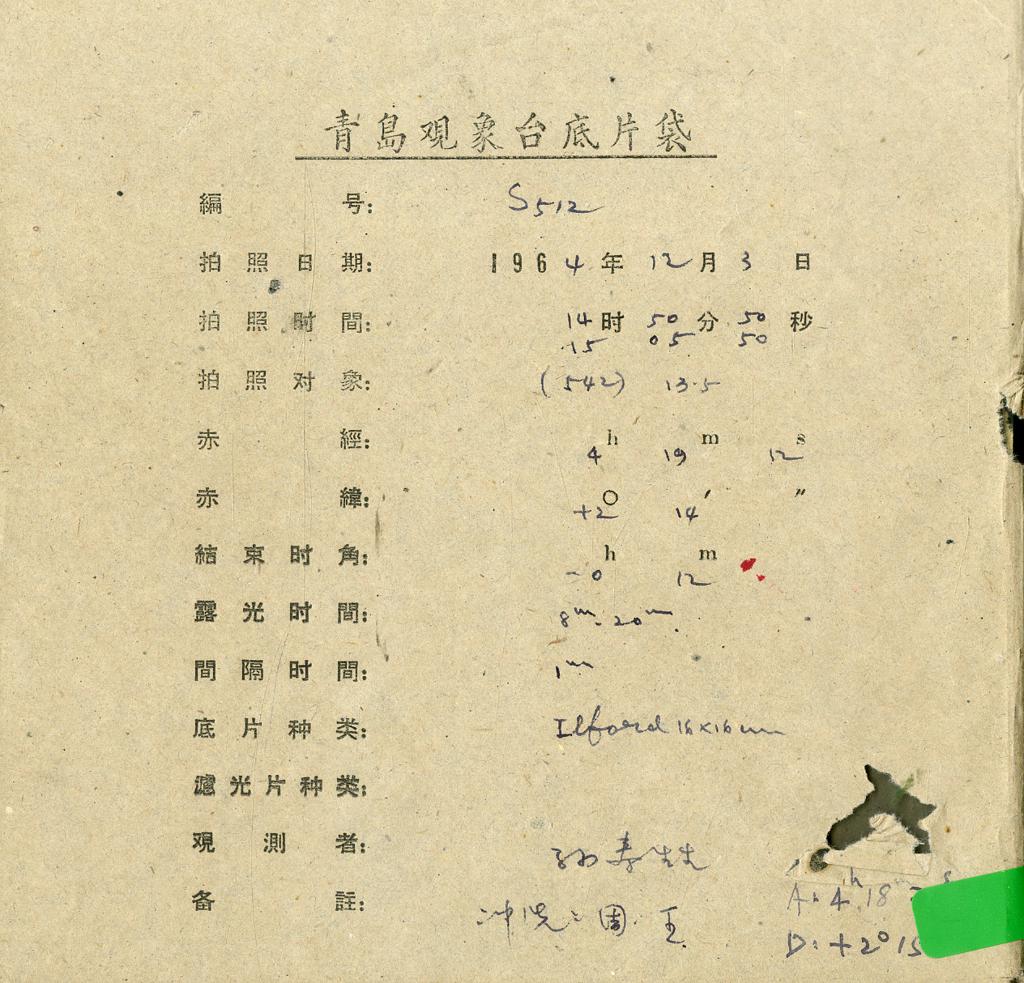 青島观象台底片袋
編号: S512
拍照日期: 1964年12月3日
拍照时間: 14时50分50秒
15 05 50
拍照对象: (542) 13.5
赤經: 4h 19m 12s
赤緯: +2° 14′ ″
結束时角: -0h 12m
露光时間: 8m. 20m.
間隔时間: 1m
底片种类: Ilford 16×16cm
濾光片种类:
观测者: 孙寿
备註: 冲洗: 周. 王
A: 4h 18m s
D: +2° 15